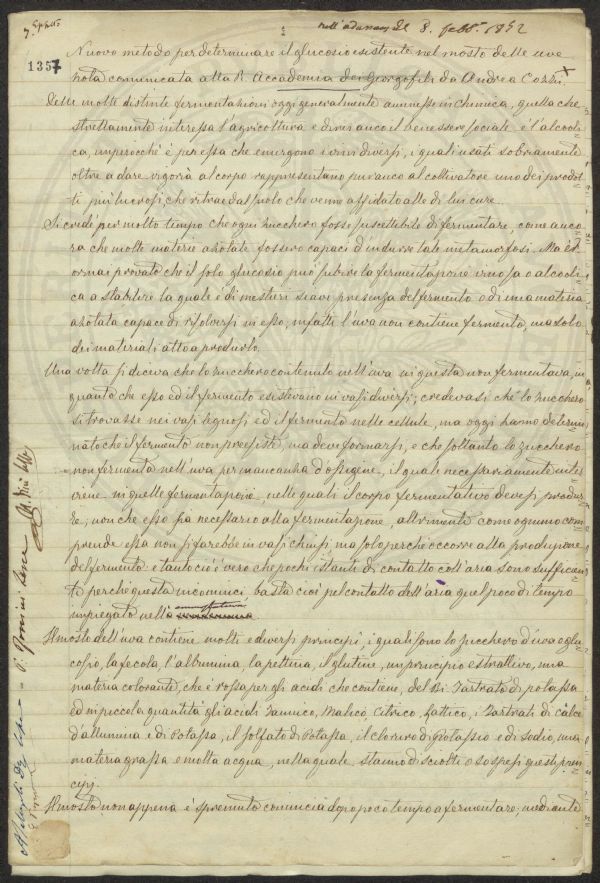 nell'adunanza del 8. febb.º 1852
1357
Nuovo metodo per determinare il glucosio esistente nel mosto delle uve
nota comunicata alla R. Accademia dei Georgofili da Andrea Cozzi
Delle molte distinte fermentazioni oggi generalmente ammesse in chimica, quella che
strettamente interessa l'agricoltura e direi anco il benessere sociale è l'alcooli-
ca, imperocchè è per essa che emergono i vini diversi, i quali usati sobriamente
oltre a dare vigoria al corpo rappresentano pur anco al coltivatore uno dei prodot-
ti più lucrosi, che ritrae dal suolo che venne affidato alle di lui cure.
Si credè per molto tempo che ogni zucchero fosse suscettibile di fermentare, come anco-
ra che molte materie azotate fossero capaci d'indurre tale metamorfosi. Ma è
ormai provato che il solo glucosio può subire la fermentazione vinosa o alcooli-
ca a stabilire la quale è di mestieri siavi presenza del fermento o di una materia
azotata capace di risolversi in esso; infatti l'uva non contiene fermento, ma solo
dei materiali atti a produrlo.
Una volta si diceva che lo zucchero contenuto nell'uva in questa non fermentava, in
quanto che esso ed il fermento esistevano in vasi diversi; credevasi che lo zucchero
si trovasse nei vasi legnosi ed il fermento nelle cellule, ma oggi hanno determi-
nato che il fermento non preesiste, ma deve formarsi, e che soltanto lo zucchero
non fermenta nell'uva per mancanza d'ossigene, il quale necessariamente inter-
viene in quelle fermentazioni, nelle quali il corpo fermentativo devesi produr-
re; non che esso sia necessario alla fermentazione, altrimenti come ognuno com-
prende essa non si farebbe in vasi chiusi, ma solo perchè occorre alla produzione
del fermento: e tanto ciò è vero che pochi istanti di contatto coll'aria sono sufficien-
ti perchè questa incominci, basta cioè pel contatto dell'aria quel poco di tempo
impiegato nella
Il mosto dell'uva contiene molti e diversi principj, i quali sono lo zucchero d'uva o glu-
cosio, la fecola, l'albumina, la pettina, il glutine, un principio estrattivo, una
materia colorante, che è rossa per gli acidi che contiene, del Bi-Tartrato di potassa
ed in piccola quantità gli acidi Tannico, Malico, Citrico, Lattico, i Tartrati di calce
d'allumina e di Potassa, il solfato di Potassa, il cloruro di Potassio e di sodio, una
materia grassa e molta acqua, nella quale stanno disciolti o sospesi questi prin-
cipj.
Il mosto non appena è spremuto comincia dopo poco tempo a fermentare; mediante